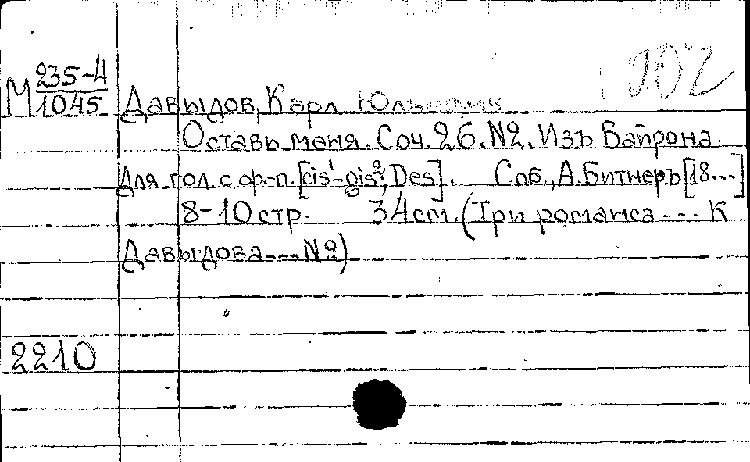 М 235-4
1045
Давыдов, Карл Юльевич
Оставь меня. Соч. 26. №2. Изъ Байрона.
Для гол. с ф.-п. [cis¹-gis², Des]. Спб., А. Битнеръ [18...]
8-10 стр. 34 см. (Три романса --- К
Давыдова --- №2)
2210